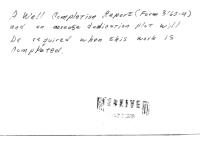 A Well Completion Report (Form 3160-4)
and an acreage dedication plat will
be required when this work is
completed.